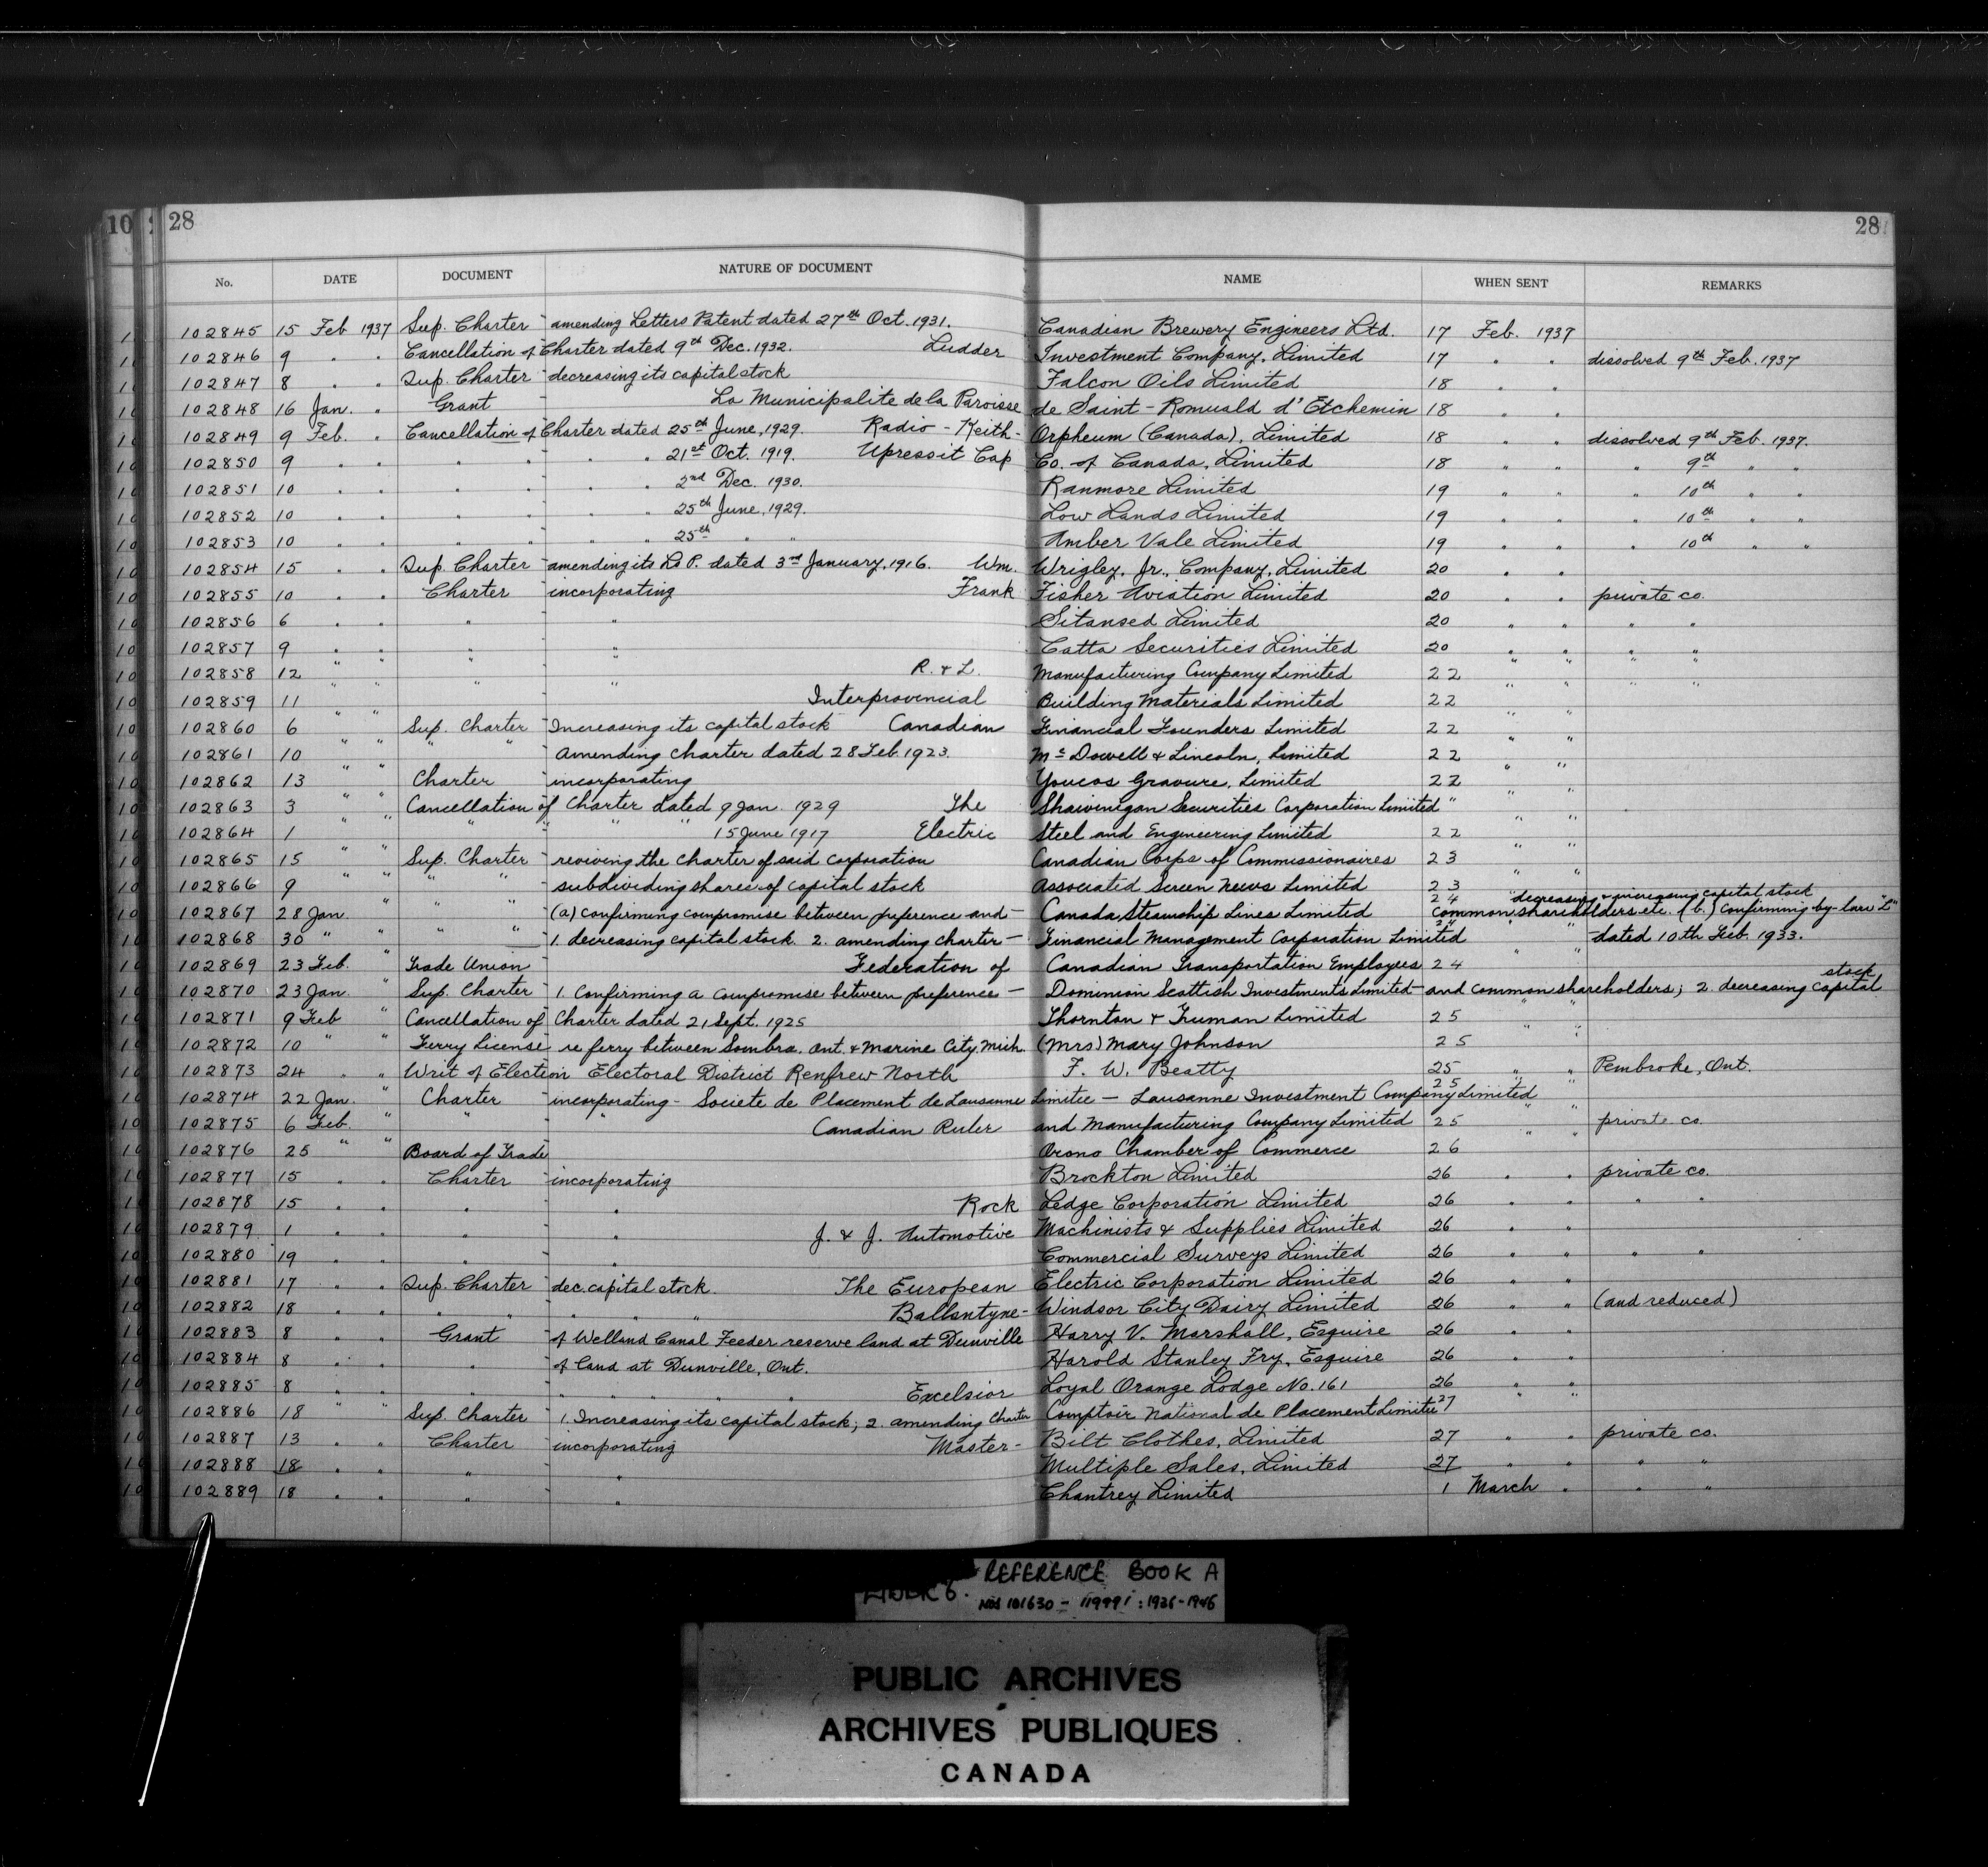 28 28
No. DATE DOCUMENT NATURE OF DOCUMENT NAME WHEN SENT REMARKS
102845 15 Feb 1937 Sup. Charter amending Letters Patent dated 27th Oct. 1931. Canadian Brewery Engineers Ltd. 17 Feb. 1937
102846 9 " " Cancellation of Charter dated 9th Dec. 1932. Ludder Investment Company, Limited 17 " " dissolved 9th Feb. 1937
102847 8 " " Sup. Charter decreasing its capital stock Falcon Oils Limited 18 " "
102848 16 Jan. " Grant La Municipalite de la Paroisse de Saint-Romuald d'Etchemin 18 " "
102849 9 Feb. " Cancellation of Charter dated 25th June, 1929. Radio-Keith-Orpheum (Canada), Limited 18 " " dissolved 9th Feb. 1937.
102850 9 " " " " " " 21st Oct. 1919. Upressit Cap Co. of Canada, Limited 18 " " " 9th " "
102851 10 " " " " " " 2nd Dec. 1930. Ranmore Limited 19 " " " 10th " "
102852 10 " " " " " " 25th June, 1929. Low Lands Limited 19 " " " 10th " "
102853 10 " " " " " " 25th " " Amber Vale Limited 19 " " " 10th " "
102854 15 " " Sup. Charter amending its L.P. dated 3rd January, 1916. Wm. Wrigley, Jr., Company, Limited 20 " "
102855 10 " " Charter incorporating Frank Fisher Aviation Limited 20 " " private co.
102856 6 " " " " Sitansed Limited 20 " " " "
102857 9 " " " " Catta Securities Limited 20 " " " "
102858 12 " " " " R. & L. Manufacturing Company Limited 22 " " " "
102859 11 " " " " Interprovincial Building Materials Limited 22 " " " "
102860 6 " " Sup. Charter Increasing its capital stock Canadian Financial Founders Limited 22 " "
102861 10 " " " " Amending Charter dated 28 Feb. 1923. McDowell & Lincoln, Limited 22 " "
102862 13 " " Charter incorporating Youcos Gravure, Limited 22 " "
102863 3 " " Cancellation of Charter dated 9 Jan. 1929 The Shawinigan Securities Corporation Limited " " "
102864 1 " " " " " " 15 June 1917 Electric Steel and Engineering Limited 22 " "
102865 15 " " Sup. Charter reviving the charter of said corporation Canadian Corps of Commissionaires 23 " "
102866 9 " " " " subdividing shares of capital stock Associated Screen News Limited 23
102867 28 Jan. " " " (a) confirming compromise between preference and — Canada Steamship Lines Limited 24 common shareholders etc. (b.) Confirming by-law "L" decreasing & increasing capital stock
102868 30 " " " " 1. decreasing capital stock. 2. amending charter — Financial Management Corporation Limited 24 " " dated 10th Feb. 1933.
102869 23 Feb. " Trade Union Federation of Canadian Transportation Employees 24 " "
102870 23 Jan. " Sup. Charter 1. Confirming a compromise between preference — Dominion Scottish Investments Limited — and common shareholders; 2. decreasing capital stock
102871 9 Feb " Cancellation of Charter dated 21 Sept. 1925 Thornton & Truman Limited 25 " "
102872 10 " " Ferry License re ferry between Sombra. Ont. & Marine City, Mich. (Mrs) Mary Johnson 25 " "
102873 24 " " Writ of Election Electoral District Renfrew North F. W. Beatty 25 " " Pembroke, Ont.
102874 22 Jan. " Charter incorporating - Societe de Placement de Lausanne Limitee — Lausanne Investment Company Limited 25 " "
102875 6 Feb. " " " Canadian Ruler and Manufacturing Company Limited 25 " " private co.
102876 25 " " Board of Trade Orono Chamber of Commerce 26 " "
102877 15 " " Charter incorporating Brockton Limited 26 " " private co.
102878 15 " " " " Rock Ledge Corporation Limited 26 " " " "
102879 1 " " " " J. & J. Automotive Machinists & Supplies Limited 26 " "
102880 19 " " " " Commercial Surveys Limited 26 " " " "
102881 17 " " Sup. Charter dec. capital stock. The European Electric Corporation Limited 26 " "
102882 18 " " " " " " " Ballantyne-Windsor City Dairy Limited 26 " " (and reduced)
102883 8 " " Grant of Welland Canal Feeder reserve land at Dunville Harry V. Marshall, Esquire 26 " "
102884 8 " " " of land at Dunville, Ont. Harold Stanley Fry, Esquire 26 " "
102885 8 " " " " " " " Excelsior Loyal Orange Lodge No. 161 26 " "
102886 18 " " Sup. Charter 1. Increasing its capital stock; 2. amending Charter Comptoir National de Placement Limitee 27 " "
102887 13 " " Charter incorporating Master-Bilt Clothes, Limited 27 " " private co.
102888 18 " " " " Multiple Sales, Limited 27 " " " "
102889 18 " " " " Chantrey Limited 1 March " " "
REFERENCE BOOK A
NOS 101630 - 119991 : 1936-1946
PUBLIC ARCHIVES
ARCHIVES PUBLIQUES
CANADA